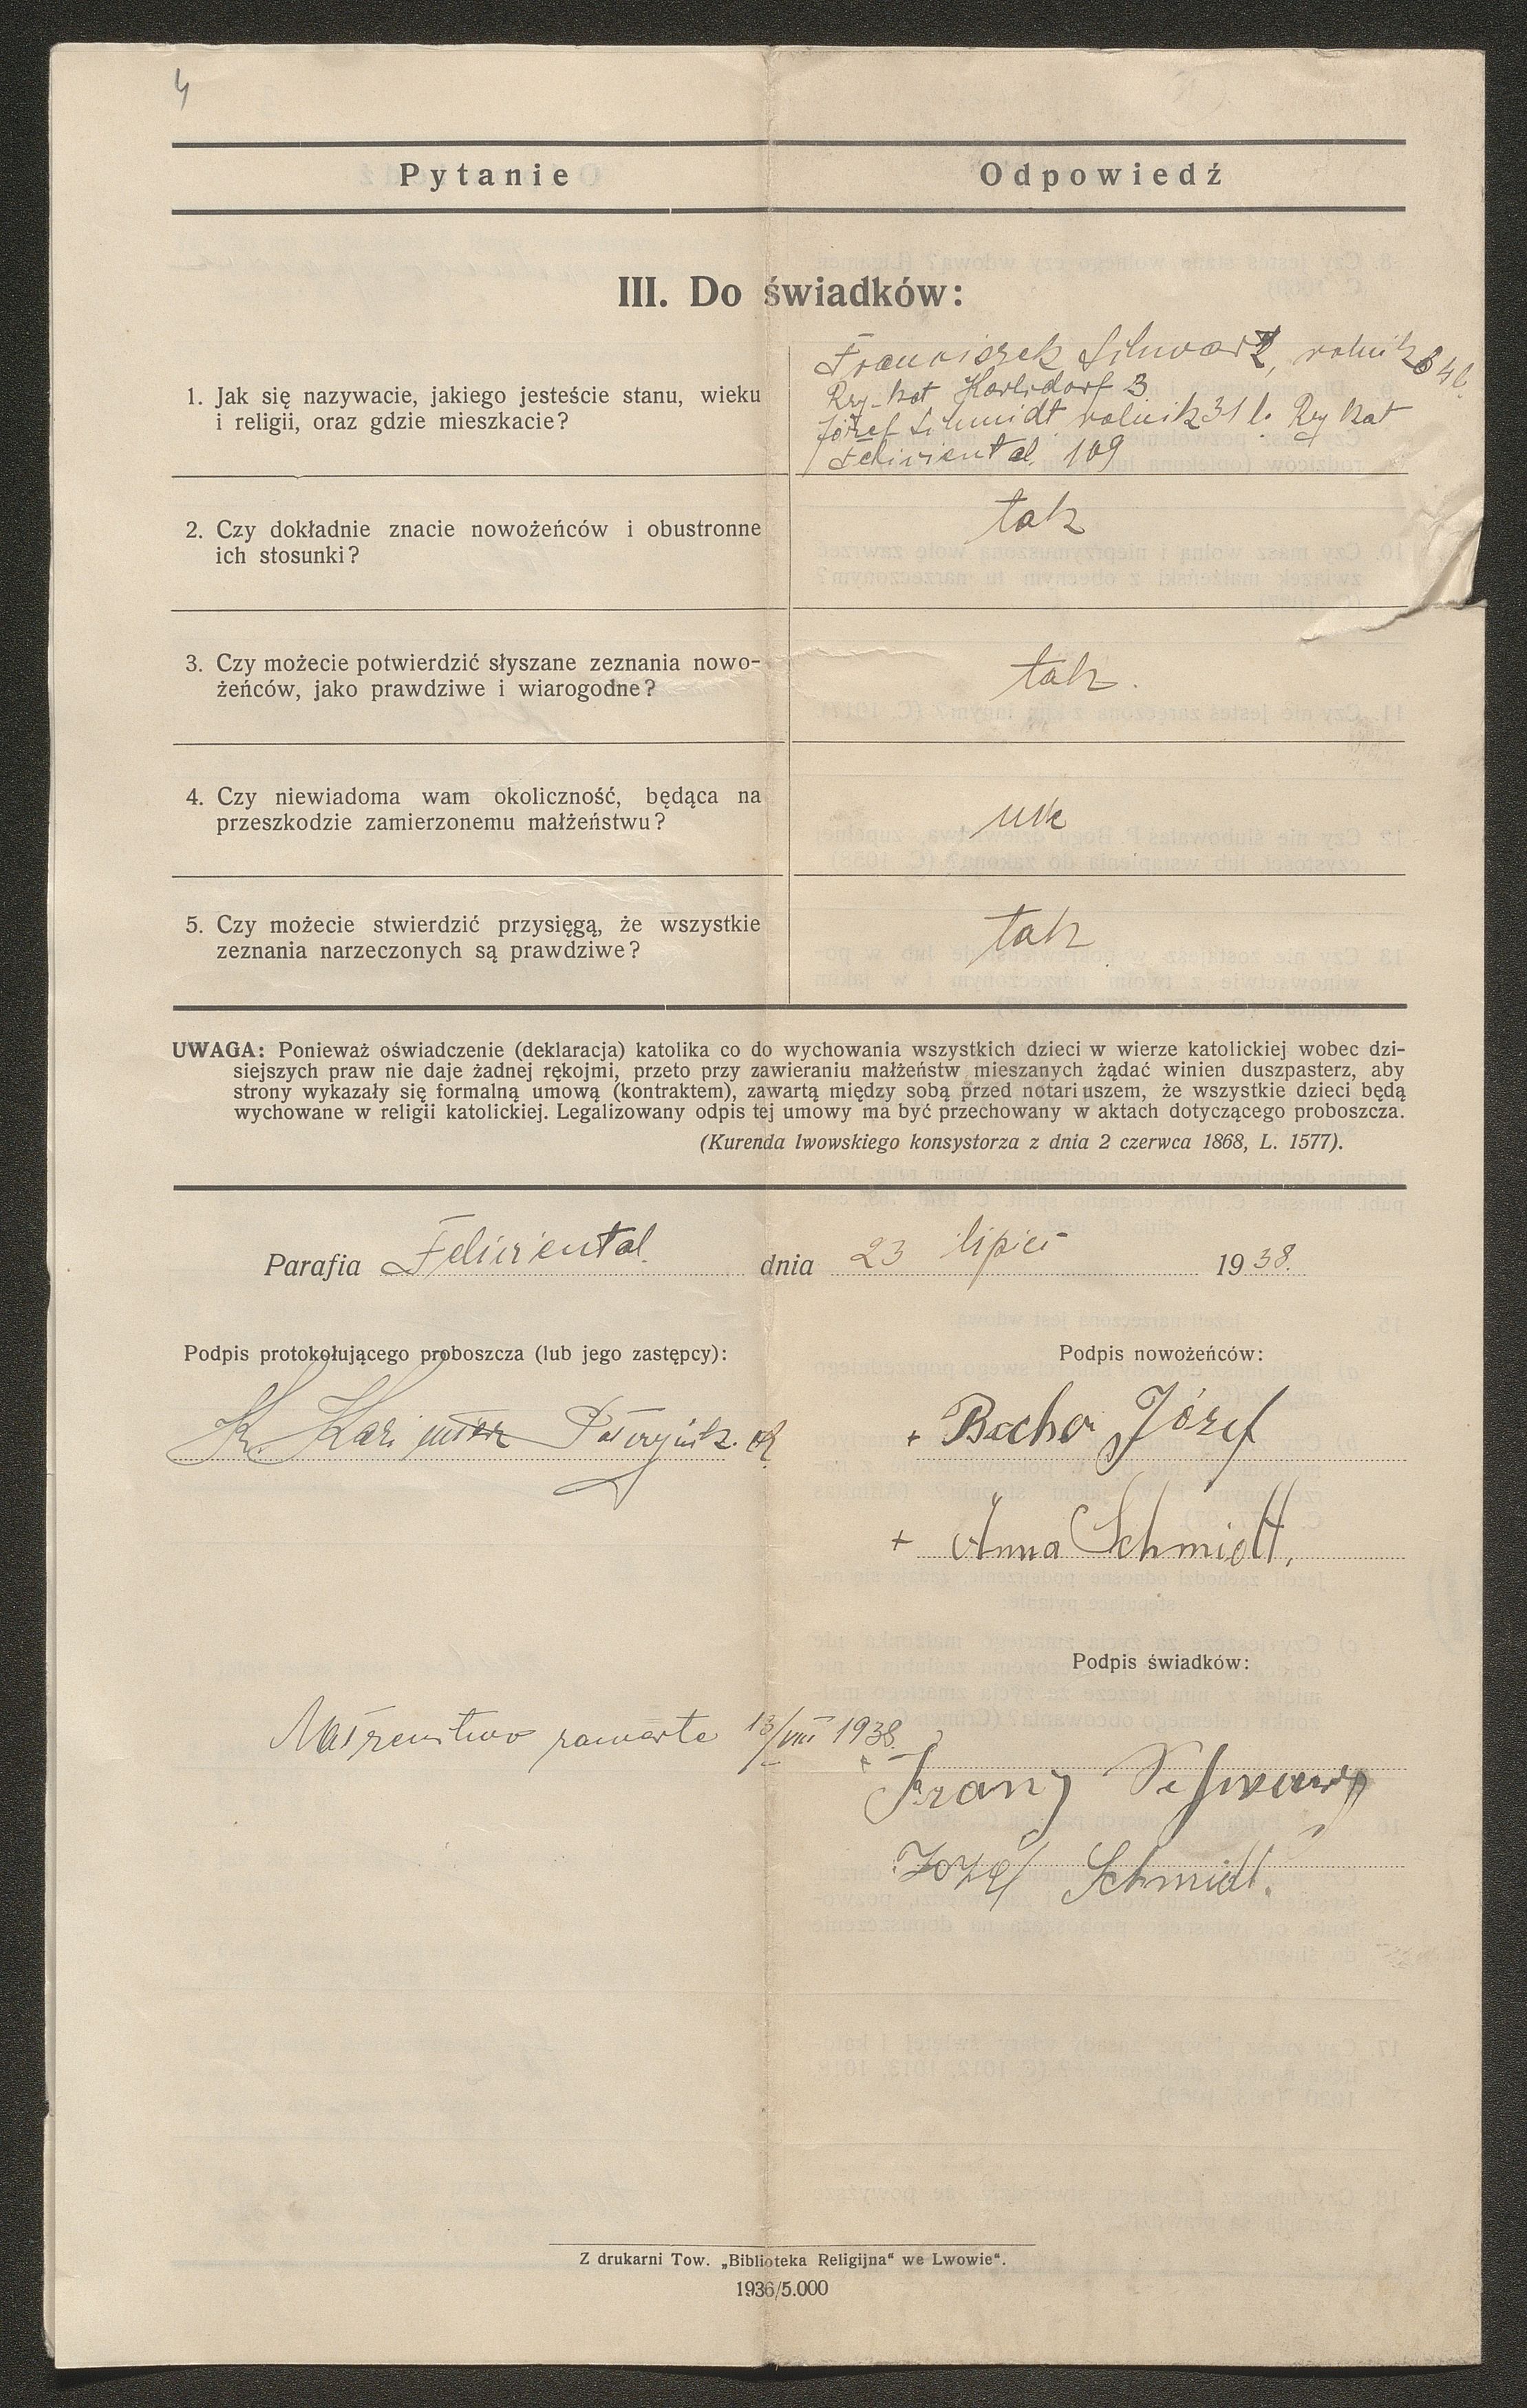 4
Pytanie Odpowiedź
III. Do świadków:
1. Jak się nazywacie, jakiego jesteście stanu, wieku
i religii, oraz gdzie mieszkacie?
Franciszek Schwarz, rolnik 34 l.
Rzy-kat Karlsdorf 3
Józef Schmidt rolnik 31 l. Rzy kat
Feliziental 109
2. Czy dokładnie znacie nowożeńców i obustronne
ich stosunki?
tak
3. Czy możecie potwierdzić słyszane zeznania nowo-
żeńców, jako prawdziwe i wiarogodne?
tak.
4. Czy niewiadoma wam okoliczność, będąca na
przeszkodzie zamierzonemu małżeństwu?
nie
5. Czy możecie stwierdzić przysięgą, że wszystkie
zeznania narzeczonych są prawdziwe?
tak
UWAGA: Ponieważ oświadczenie (deklaracja) katolika co do wychowania wszystkich dzieci w wierze katolickiej wobec dzi-
siejszych praw nie daje żadnej rękojmi, przeto przy zawieraniu małżeństw mieszanych żądać winien duszpasterz, aby
strony wykazały się formalną umową (kontraktem), zawartą między sobą przed notariuszem, że wszystkie dzieci będą
wychowane w religii katolickiej. Legalizowany odpis tej umowy ma być przechowany w aktach dotyczącego proboszcza.
(Kurenda lwowskiego konsystorza z dnia 2 czerwca 1868, L. 1577).
Parafia Feliziental dnia 23 lipiec 1938.
Podpis protokołującego proboszcza (lub jego zastępcy): Podpis nowożeńców:
X. Kazimierz
+ Bacher Józef
+ Anna Schmidt,
Podpis świadków:
Małżeństwo zawarte 13/VIII 1938.
+ Franz Schwarz
Józef Schmidt.
Z drukarni Tow. „Biblioteka Religijna" we Lwowie".
1936/5.000